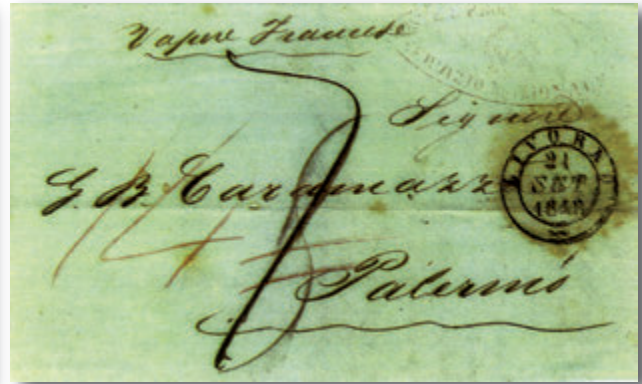 Vapore Francese
Signore
G. B. Caramazza
Palermo
LIVORNO
21
SET
1848